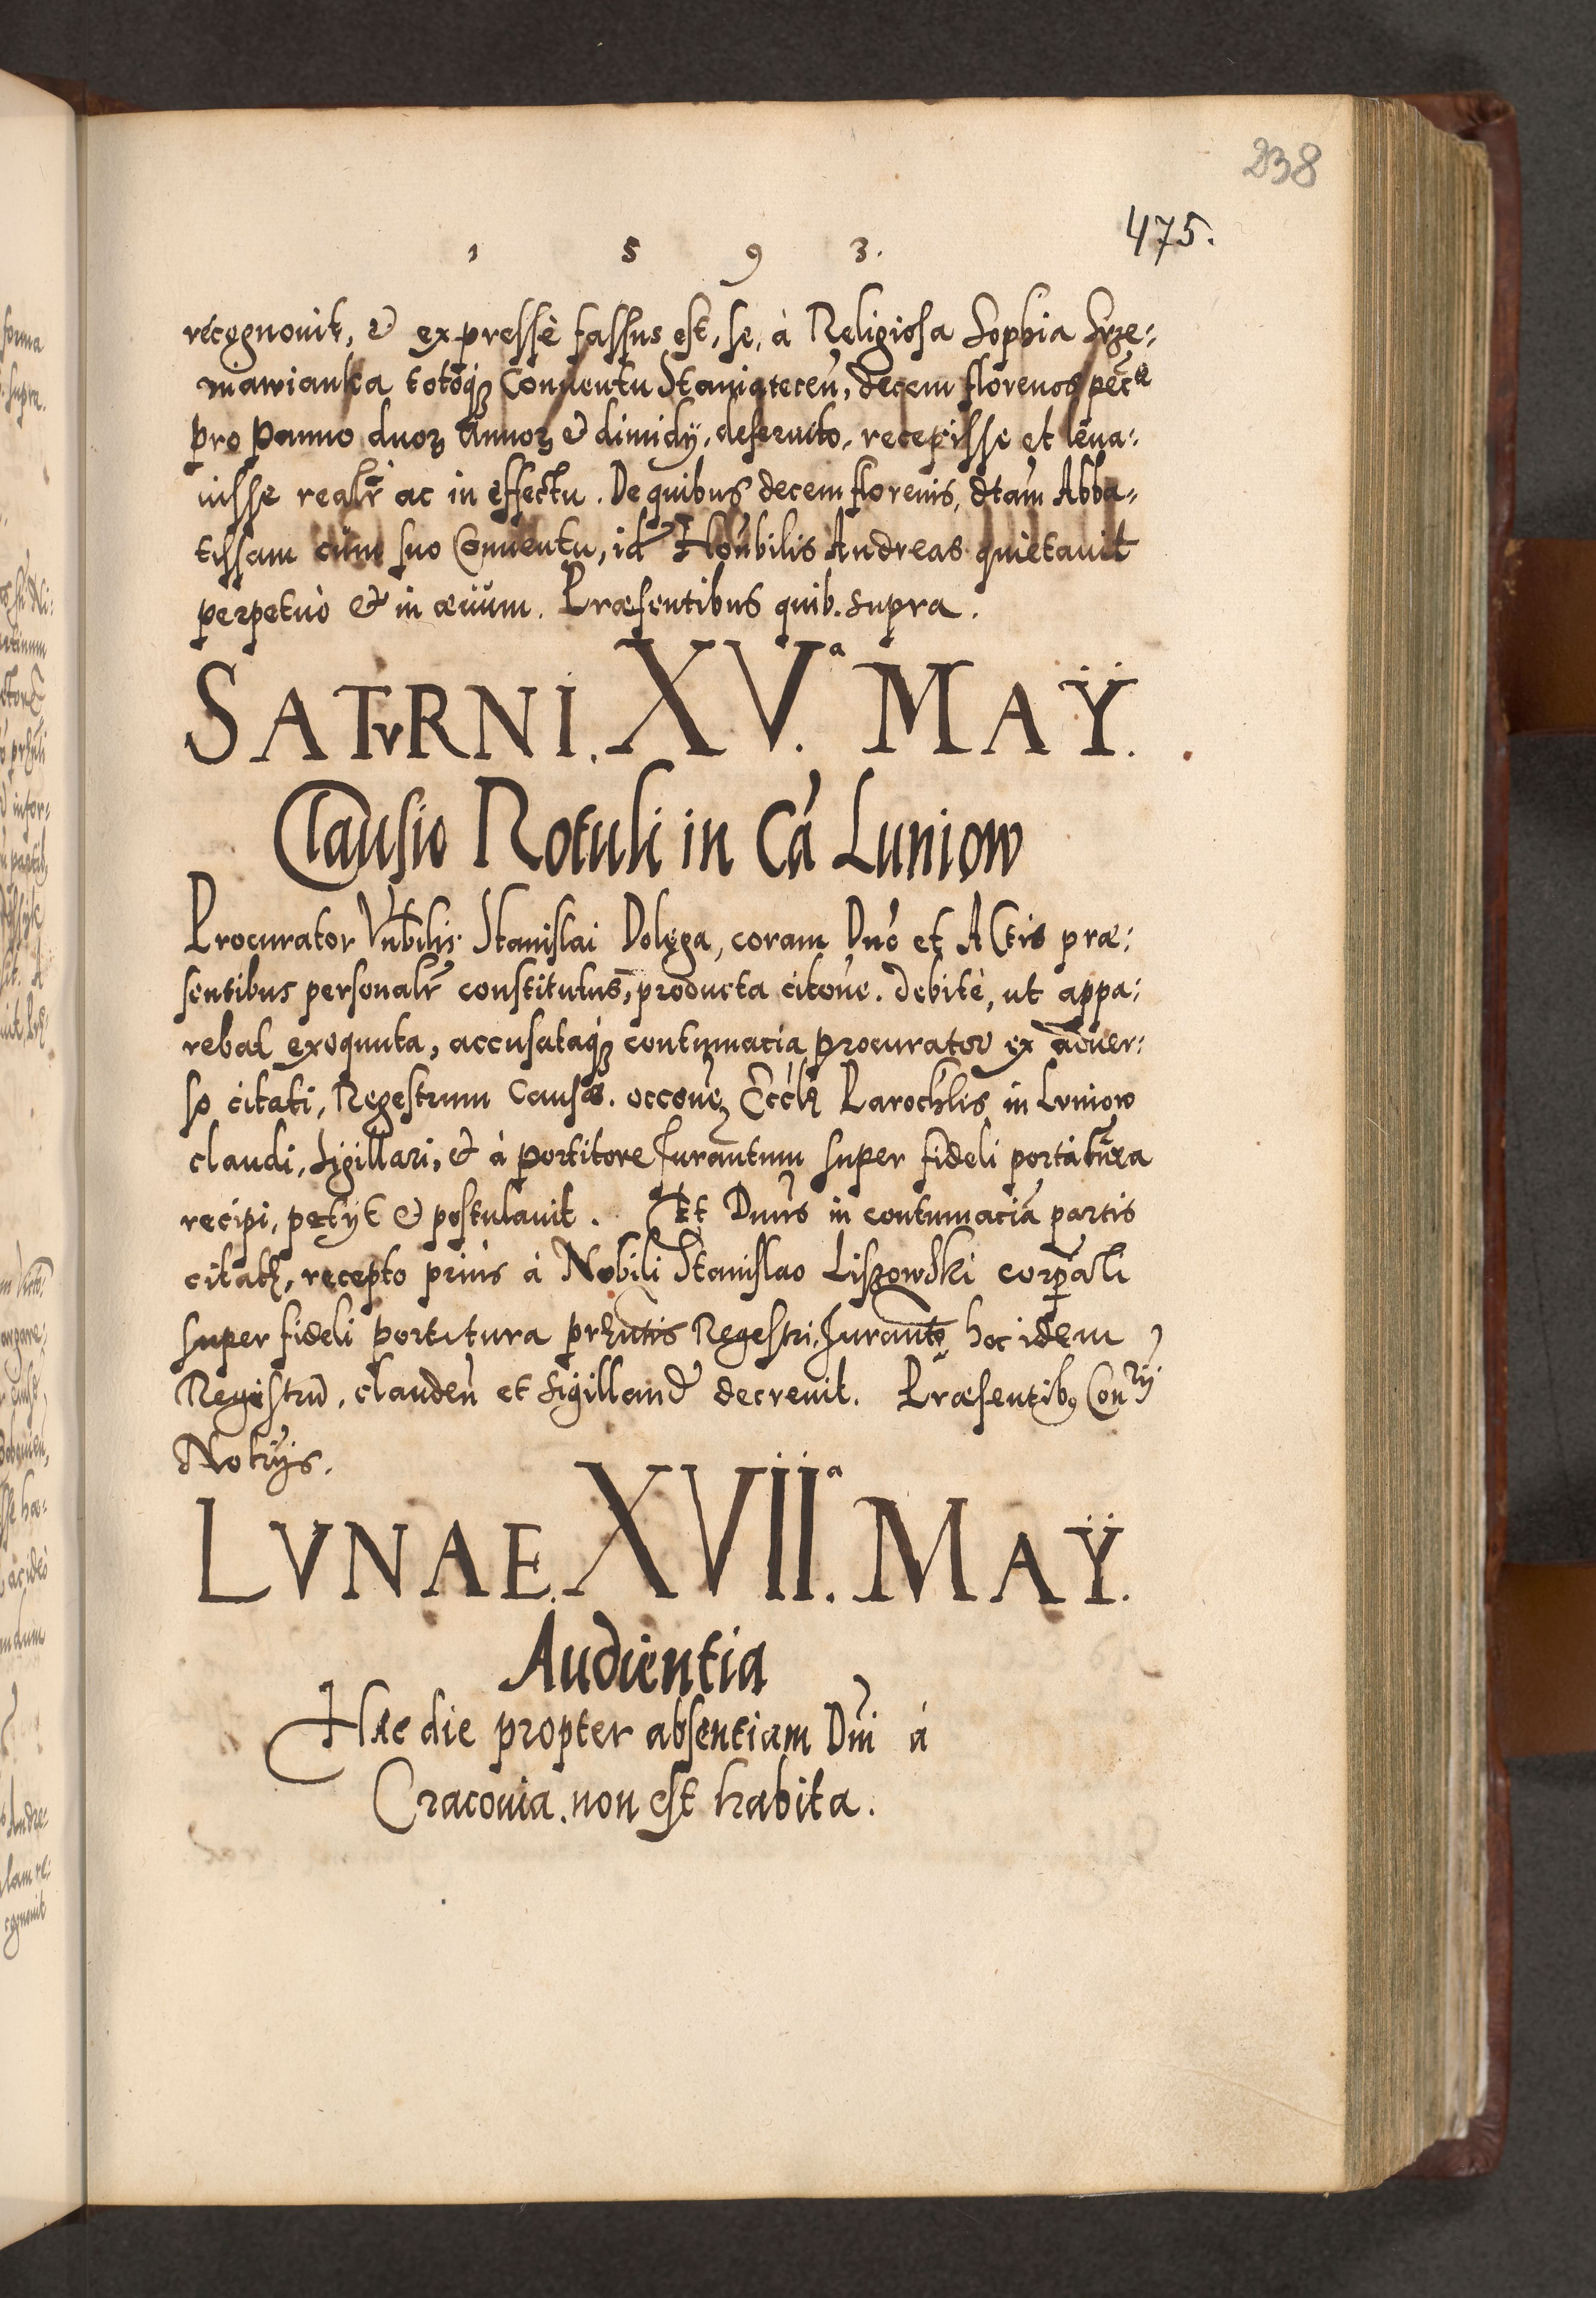 238
475.
1 5 9 3.
recognouit, & expressè fassus est, se, à Religiosa Sophia Srze:
niawianka totoq; Conuentu Staniątecen̄, decem florenos pec̄ę
pro panno duoꝝ annoꝝ & dimidÿ, deseruito, recepisse et leua:
uisse realr̄ ac in effectu. De quibus decem florenis, dtam Abba:
tissam cum suo Conuentu, id Honbilis Andreas quietauit
perpetuò & in æuum. Præsentibus quib. supra.
SATVRNI. XV.ª MAŸ.
Clausio Rotuli in Cá Luniow
Procurator Vnbilis Stanislai Dolęga, coram Dnō et Actis præ:
sentibus personalr̄ constitutus, producta citōne. debitè, ut appa:
rebat exequuta, accusataq; contumacia procurator ex aduer:
so citati, Regestrum Causæ. occōne Eccłæ Parochlis in Luniow
claudi, sigillari, & à portitore Juramtum super fideli portatura
recipi, petÿt & postulauit. Et Dnus in contumaciā partis
citatæ, recepto prius à Nobili Stanislao Liszowski corpali
super fideli portitura prntis Regestri, Juramto, hoc idem
Regestrū, clauden̄ et sigilland̄ decreuit. Præsentib9 Conrÿ
Notrÿs.
LVNAE. XVII.ª MAŸ.
Audientia
Hac die propter absentiam Dni á
Cracouia. non est habita.